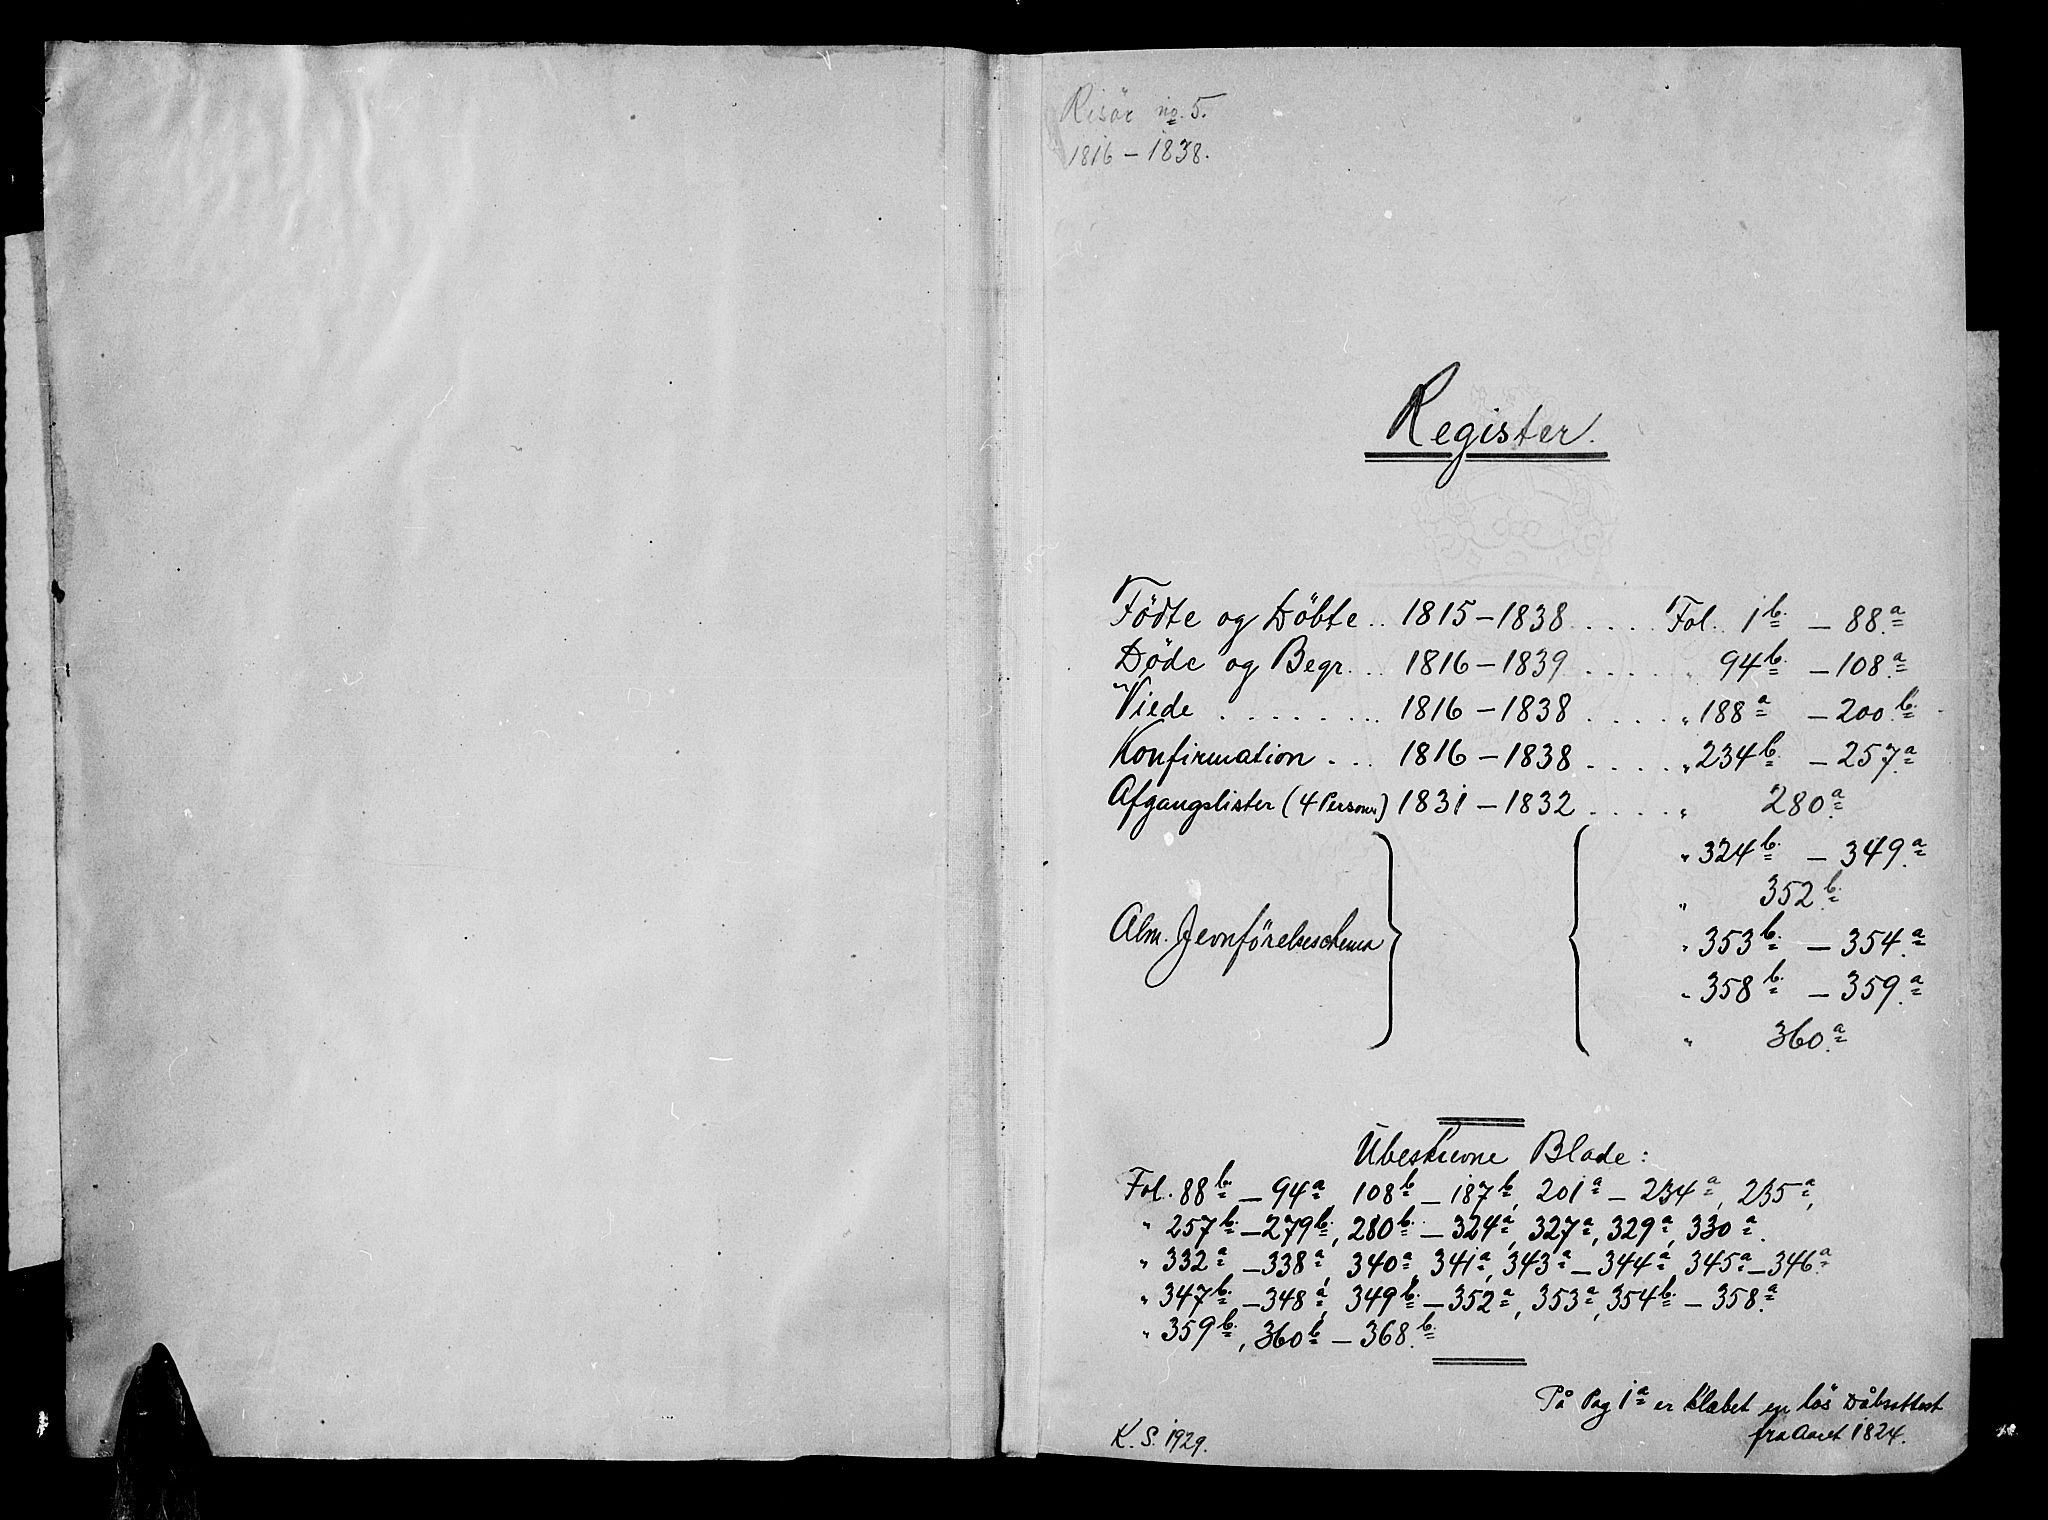 Risör no. 5.
1816 – 1838.
Register.
Födte og Döbte .. 1815 – 1838 . . . . Fol. 1b – 88a
Døde og Begr. . . 1816 – 1839 . . . . „ 94b – 108a
Viede . . . . . . . . 1816 – 1838 . . . . „ 188a – 200b
Konfirmation . . . 1816 – 1838 . . . . „ 234b – 257a
Afgangslister (4 Person.) 1831 – 1832 . . . . „ 280a
„ 324b – 349a
„ 352b
Alm. Jevnförelseschema „ 353b – 354a
„ 358b – 359a
„ 360a
Ubeskrevne Blade:
Fol. 88b – 94a, 108b – 187b, 201a – 234a, 235a,
„ 257b – 279b, 280b – 324a, 327a, 329a, 330a.
„ 332a – 338a, 340a, 341a, 343a – 344a, 345a – 346a
„ 347b – 348a, 349b – 352a, 353a, 354b – 358a
„ 359b, 360b – 368b
På Pag 1a er klæbet en lös Dåbsattest
fra Aaret 1824.
K. S. 1929.